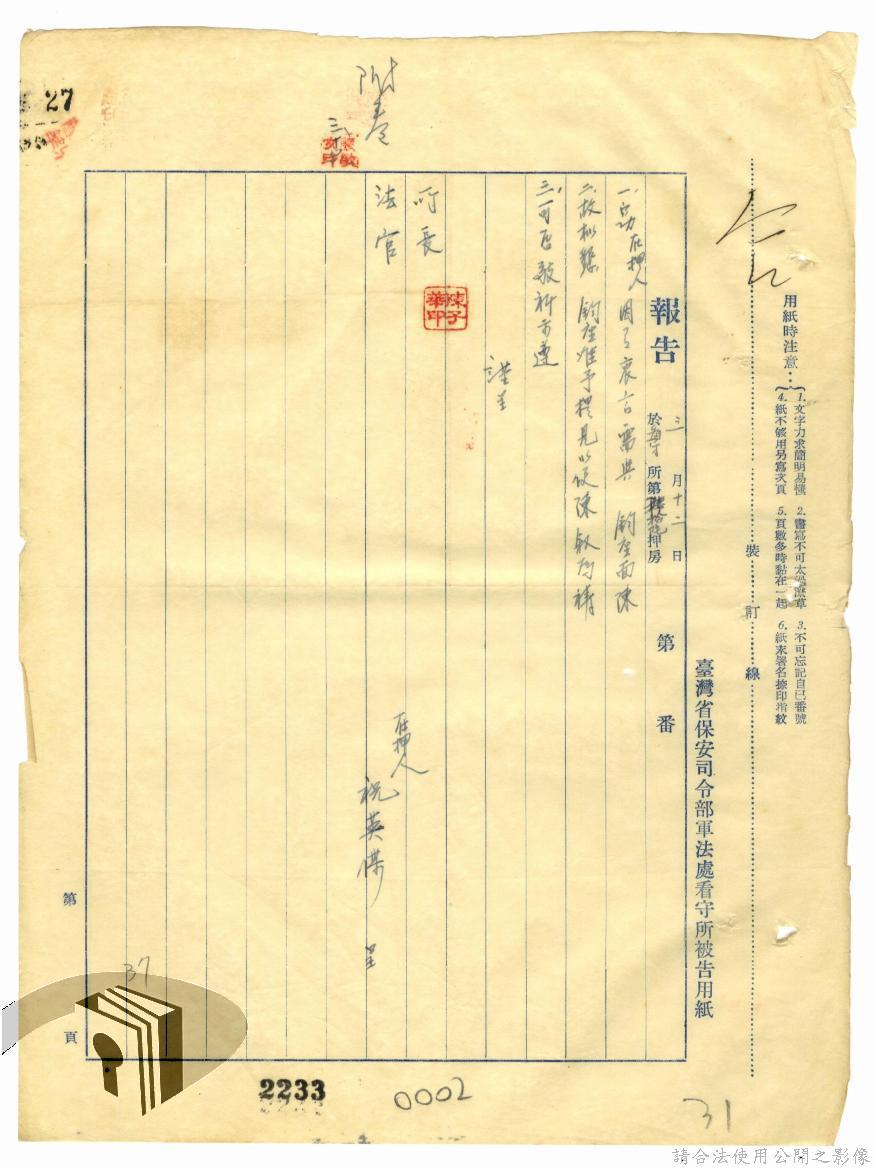 27
附卷
用紙時注意：
1.文字力求簡明易懂
2.書寫不可太過潦草
3.不可忘記自己番號
4.紙不够用另寫次頁
5.頁數多時黏在一起
6.紙末署名捺印指紋
裝訂線
臺灣省保安司令部軍法處看守所被告用紙
報告
三月十二日
於 所第 押房
第 番
一、 在押人因 衷言需與 鈞座面陳
二、故 懇 鈞座准予提見以便陳 禱
三、可否 敬祈示遵
謹呈
所長
法官
陳子華印
在押人 祝英傑 呈
第 頁
37
2233
0002
31
請合法使用公開之影像